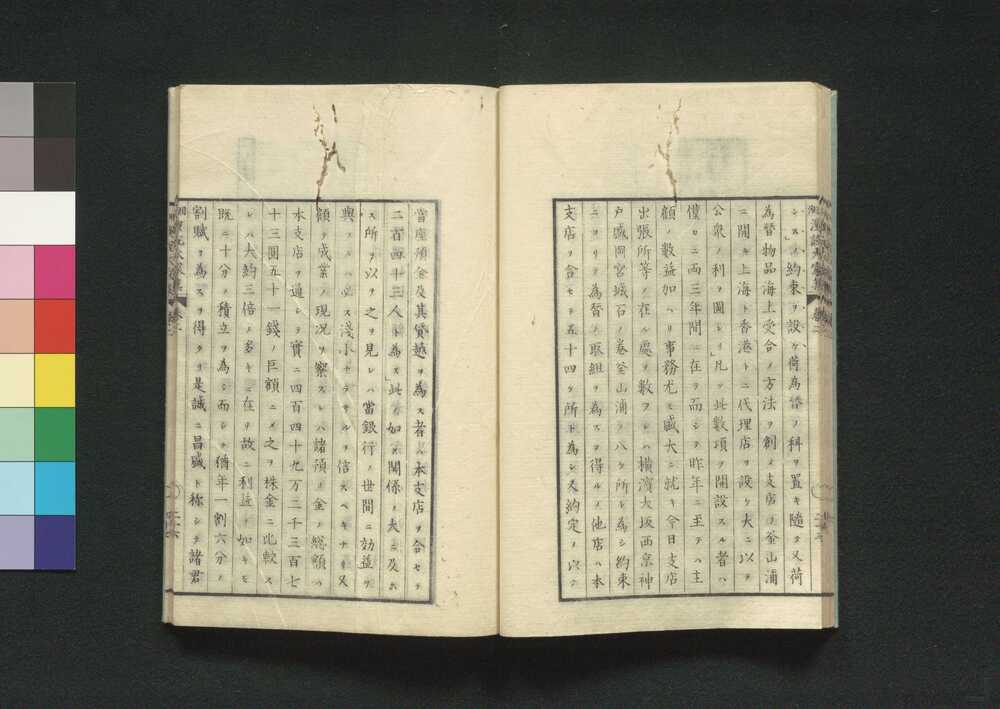 シスノ約束ヲ設ケ荷為替ノ科ヲ置キ随タ又荷
為替物品海上受合ノ方法ヲ創メ支店ヲ釜山浦
ニ開キ上海ト香港トニ代理店ヲ設ケ大ニ以テ
公衆ノ利ヲ圖レリ」凡ソ此數項ヲ開設スル者ハ
僅カニ両三年間ニ在リ而シテ昨年ニ至テハ主
顧ノ數益加ハリ事務尤モ盛大ニ就キ今日支店
出張所等ノ在ル處ヲ數フレハ横濱大坂西京神
戸盛岡宮城石ノ巻釜山浦ノ八ケ所トシ為シ約束
ニヨリテ為替ノ取組ヲ為スヲ得ルノ他店ハ本
支店ヲ合セテ五十四ケ所ト為シ又約定ヲ以テ
當座預金及其貸越ヲ為ス者ハ本支店ヲ合セテ
二百四十三人ト為ス」此ノ如キ関係ノ夫ニ及ホ
ス所ヲ以テ之ヲ見レハ當銀行ノ世間ニ効益ヲ
與フルハ必ス浅小ナラサルヲ信スヘキナリ又
顧テ成業ノ現況ヲ察スレハ諸預リ金ノ総額ハ
本支店ヲ通シテ實ニ四百四十九万二千三百七
十三圓五十一錢ノ巨額ニメ之ヲ株金ニ比較ス
レハ大約三倍ノ多キニ在リ故ニ利益ノ如キモ
既ニ十分ノ積立ヲ為シ而シテ猶年一割六分ノ
割賦ヲ為スヲ得タリ是誠ニ昌盛ト称シテ諸君